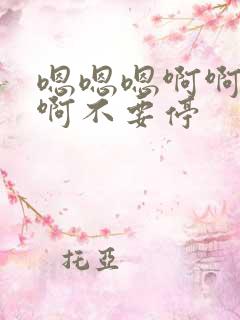 嗯嗯嗯啊啊
啊不要停
托亞